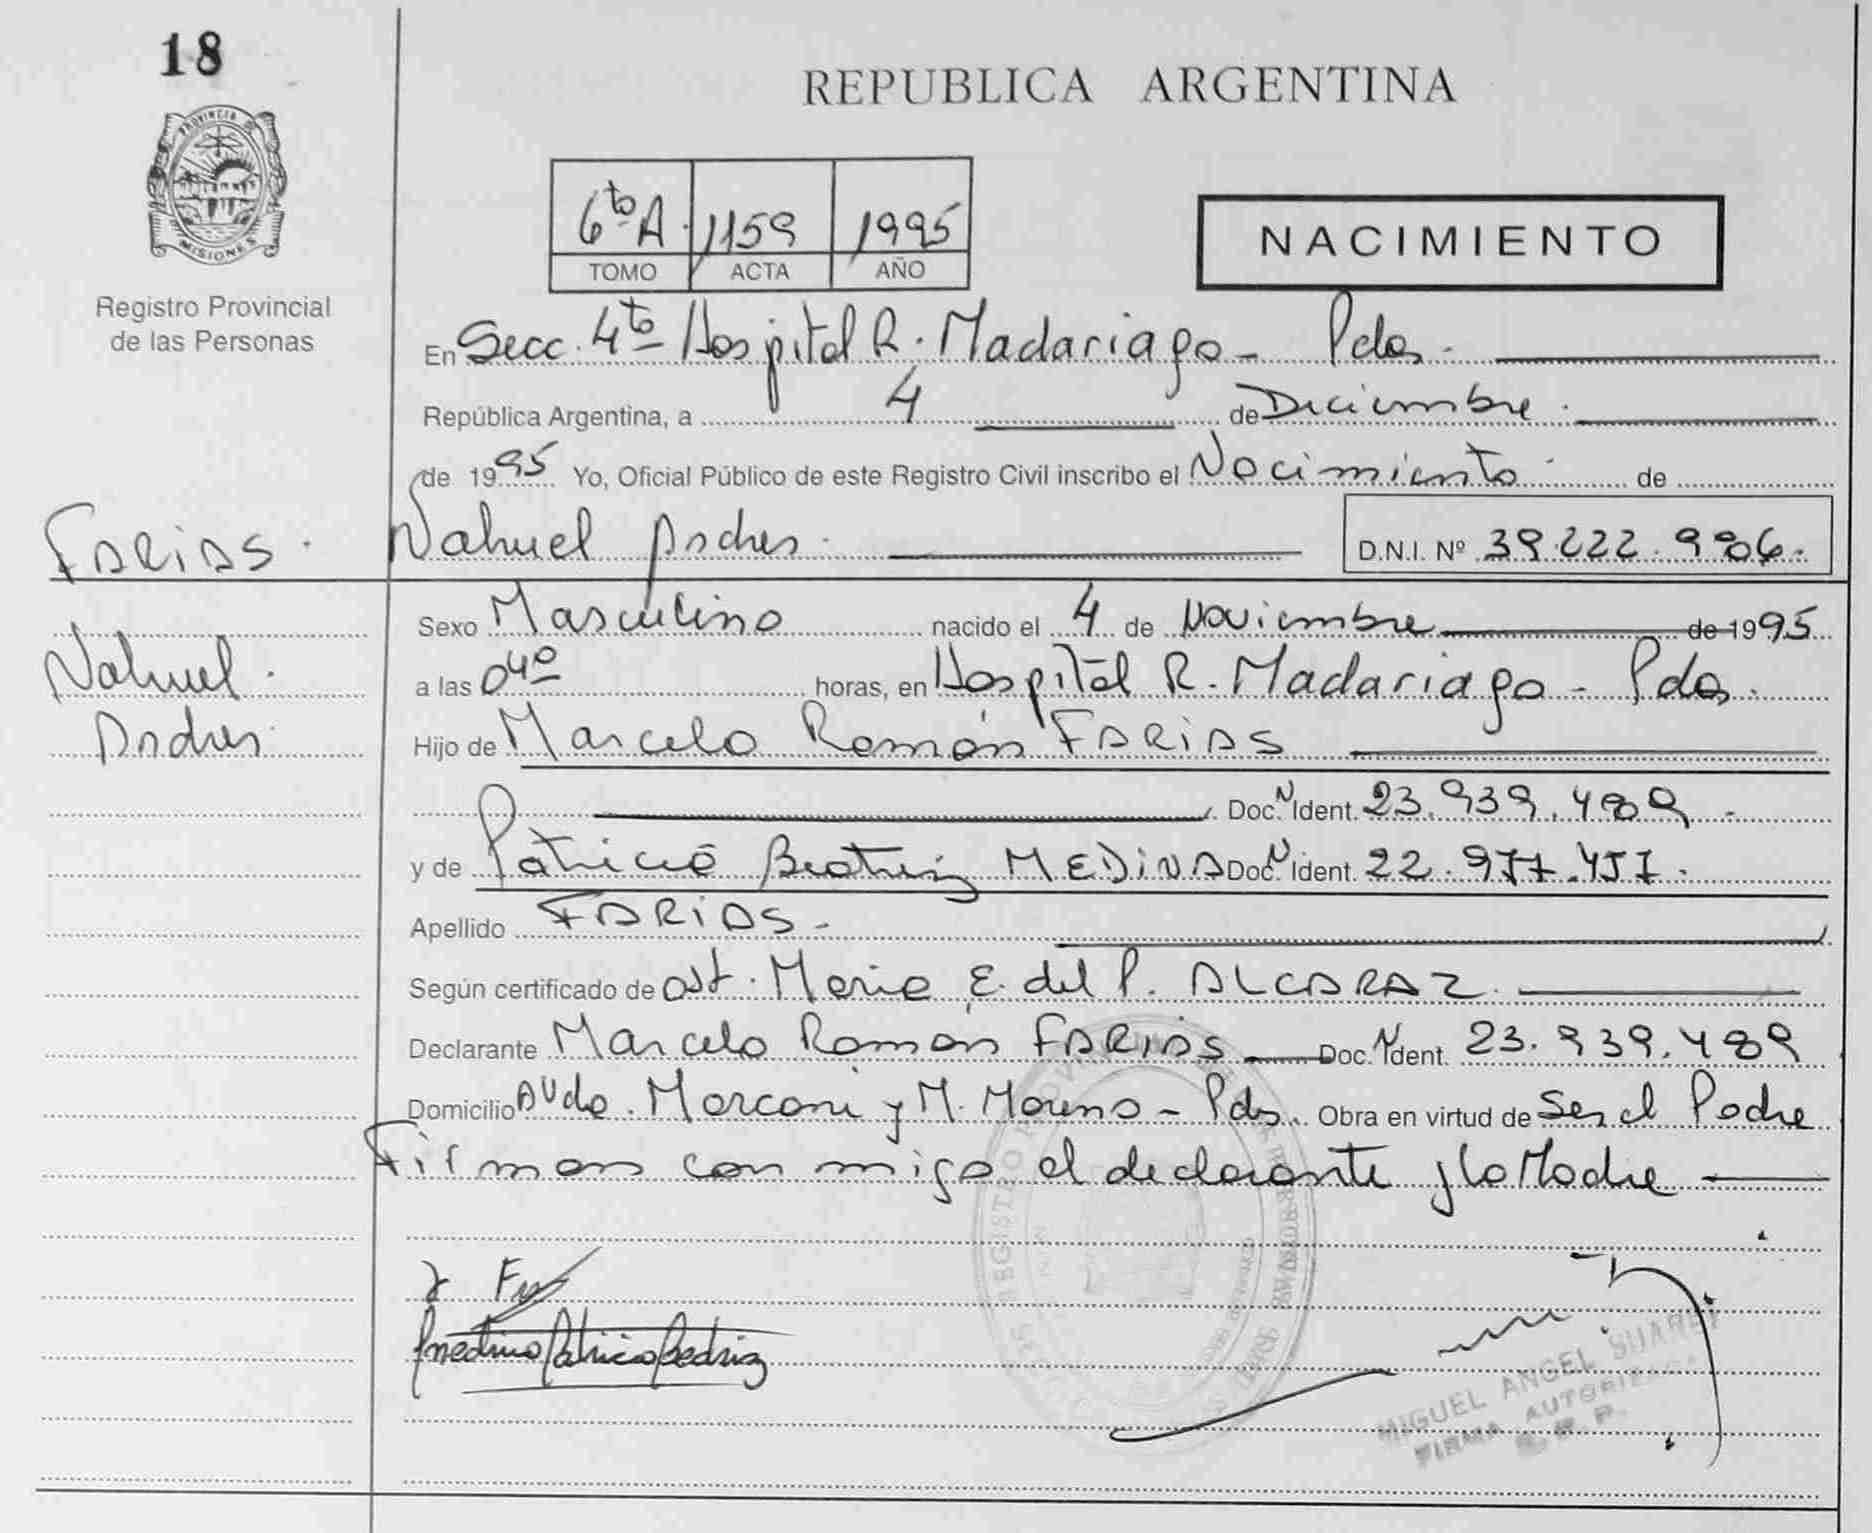 18
PROVINCIA DE
MISIONES
Registro Provincial
de las Personas
REPUBLICA ARGENTINA
6to A. 1159 1995
TOMO ACTA AÑO
NACIMIENTO
En Secc. 4to Hospital R. Madariaga - Pdas.
República Argentina, a 4 de Diciembre.
de 1995 Yo, Oficial Público de este Registro Civil inscribo el Nacimiento de
FARIAS. Nahuel Andres. D.N.I. Nº 39.222.906.
Sexo Masculino nacido el 4 de Noviembre de 1995
Nahuel.
Andres.
a las 04º horas, en Hospital R. Madariaga - Pdas.
Hijo de Marcelo Ramón FARIAS
Doc. N Ident. 23.939.489.
y de Patricia Beatriz MEDINA Doc. N Ident. 22.977.457.
Apellido FARIAS.
Según certificado de Ost. Maria E. del P. ALCARAZ.
Declarante Marcelo Ramón FARIAS Doc. N Ident. 23.939.489
Domicilio Avda. Marconi y M. Moreno - Pdas. Obra en virtud de Ser el Padre
Firman con migo el declarante y la Madre
Medina Patricia Beatriz
MIGUEL ANGEL SUAREZ
FIRMA AUTORIZADA
R. P. P.